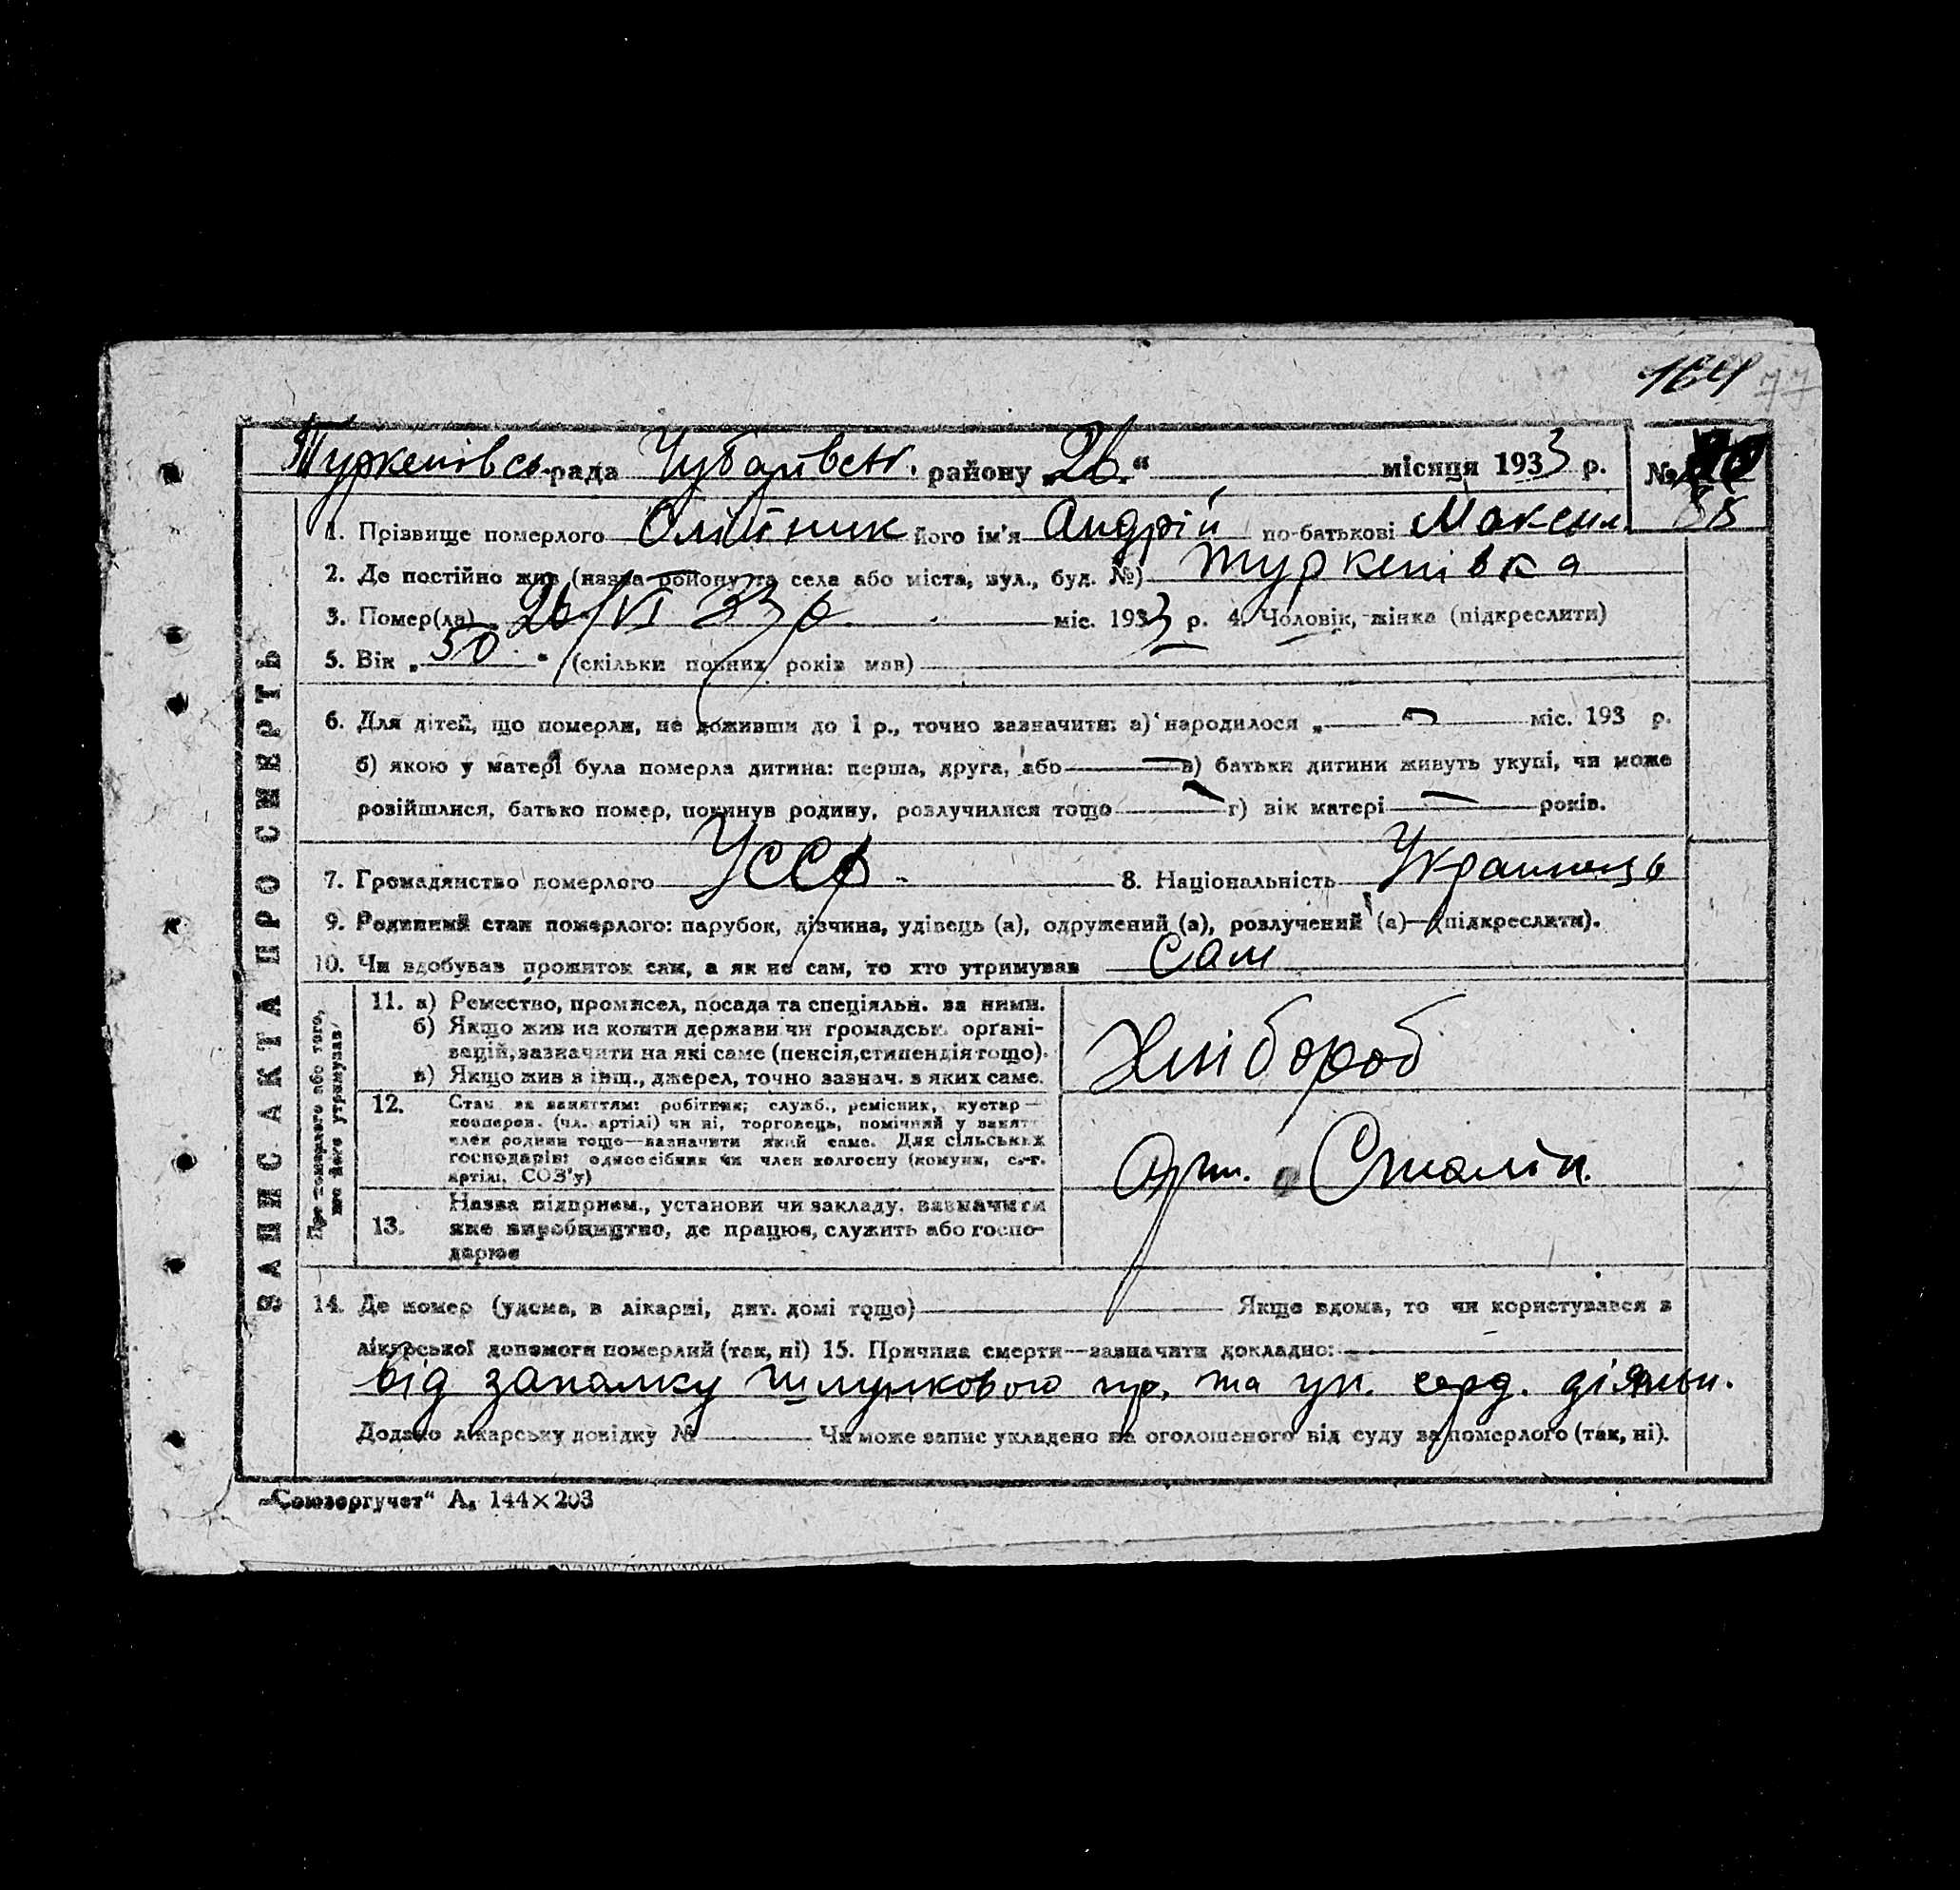 164 77
Туркенівсь рада Чубарівськ. району „26“ місяця 1933 р. №
88
1. Прізвище померлого Олійник його ім'я Андрій по-батькові Максим.
2. Де постійно жив (назва району та села або міста, вул., буд. №) Туркенівка
3. Помер(ла) „26/VI 33 р. міс. 1933 р. 4. Чоловік, жінка (підкреслити)
5. Вік „50“ (скільки повних років мав)
6. Для дітей, що померли, не доживши до 1 р., точно зазначити: а) народилося „ міс. 193 р.
б) якою у матері була померла дитина: перша, друга, або в) батьки дитини живуть укупі, чи може
розійшлися, батько помер, покинув родину, розлучилися тощо г) вік матері років.
7. Громадянство померлого УССР 8. Національність Українець
9. Родинний стан померлого: парубок, дівчина, удівець (а), одружений (а), розлучений (а)—(підкреслити).
10. Чи здобував прожиток сам, а як не сам, то хто утримував сам
ЗАПИС АКТА ПРО СМЕРТЬ
Про померлого або того,
хто його утримував
11. а) Ремество, промисел, посада та спеціяльн. за ними.
б) Якщо жив на кошти держави чи громадськ. органі-
зацій, зазначити на які саме (пенсія, стипендія тощо).
в) Якщо жив з інш., джерел, точно зазнач. з яких саме.
Хлібороб
12. Стан за заняттям: робітник; служб., ремісник, кустар—
кооперов. (чл. артілі) чи ні, торговець, помічний у занятт
член родини тощо—зазначити який саме. Для сільських
господарів: одноосібник чи член колгоспу (комуни, с.-г.
артілі, СОЗ'у)
Арт. Сталін.
13. Назва підприєм., установи чи закладу, зазначити
яке виробництво, де працює, служить або госпо-
дарює
14. Де помер (удома, в лікарні, дит. домі тощо) Якщо вдома, то чи користувався з
лікарської допомоги померлий (так, ні) 15. Причина смерти—зазначити докладно:
від запалку шлункового пр. та уп. серд. діяльн.
Додано лікарську довідку № Чи може запис укладено на оголошеного від суду за померлого (так, ні).
„Союзоргучет“ А₅ 144×203